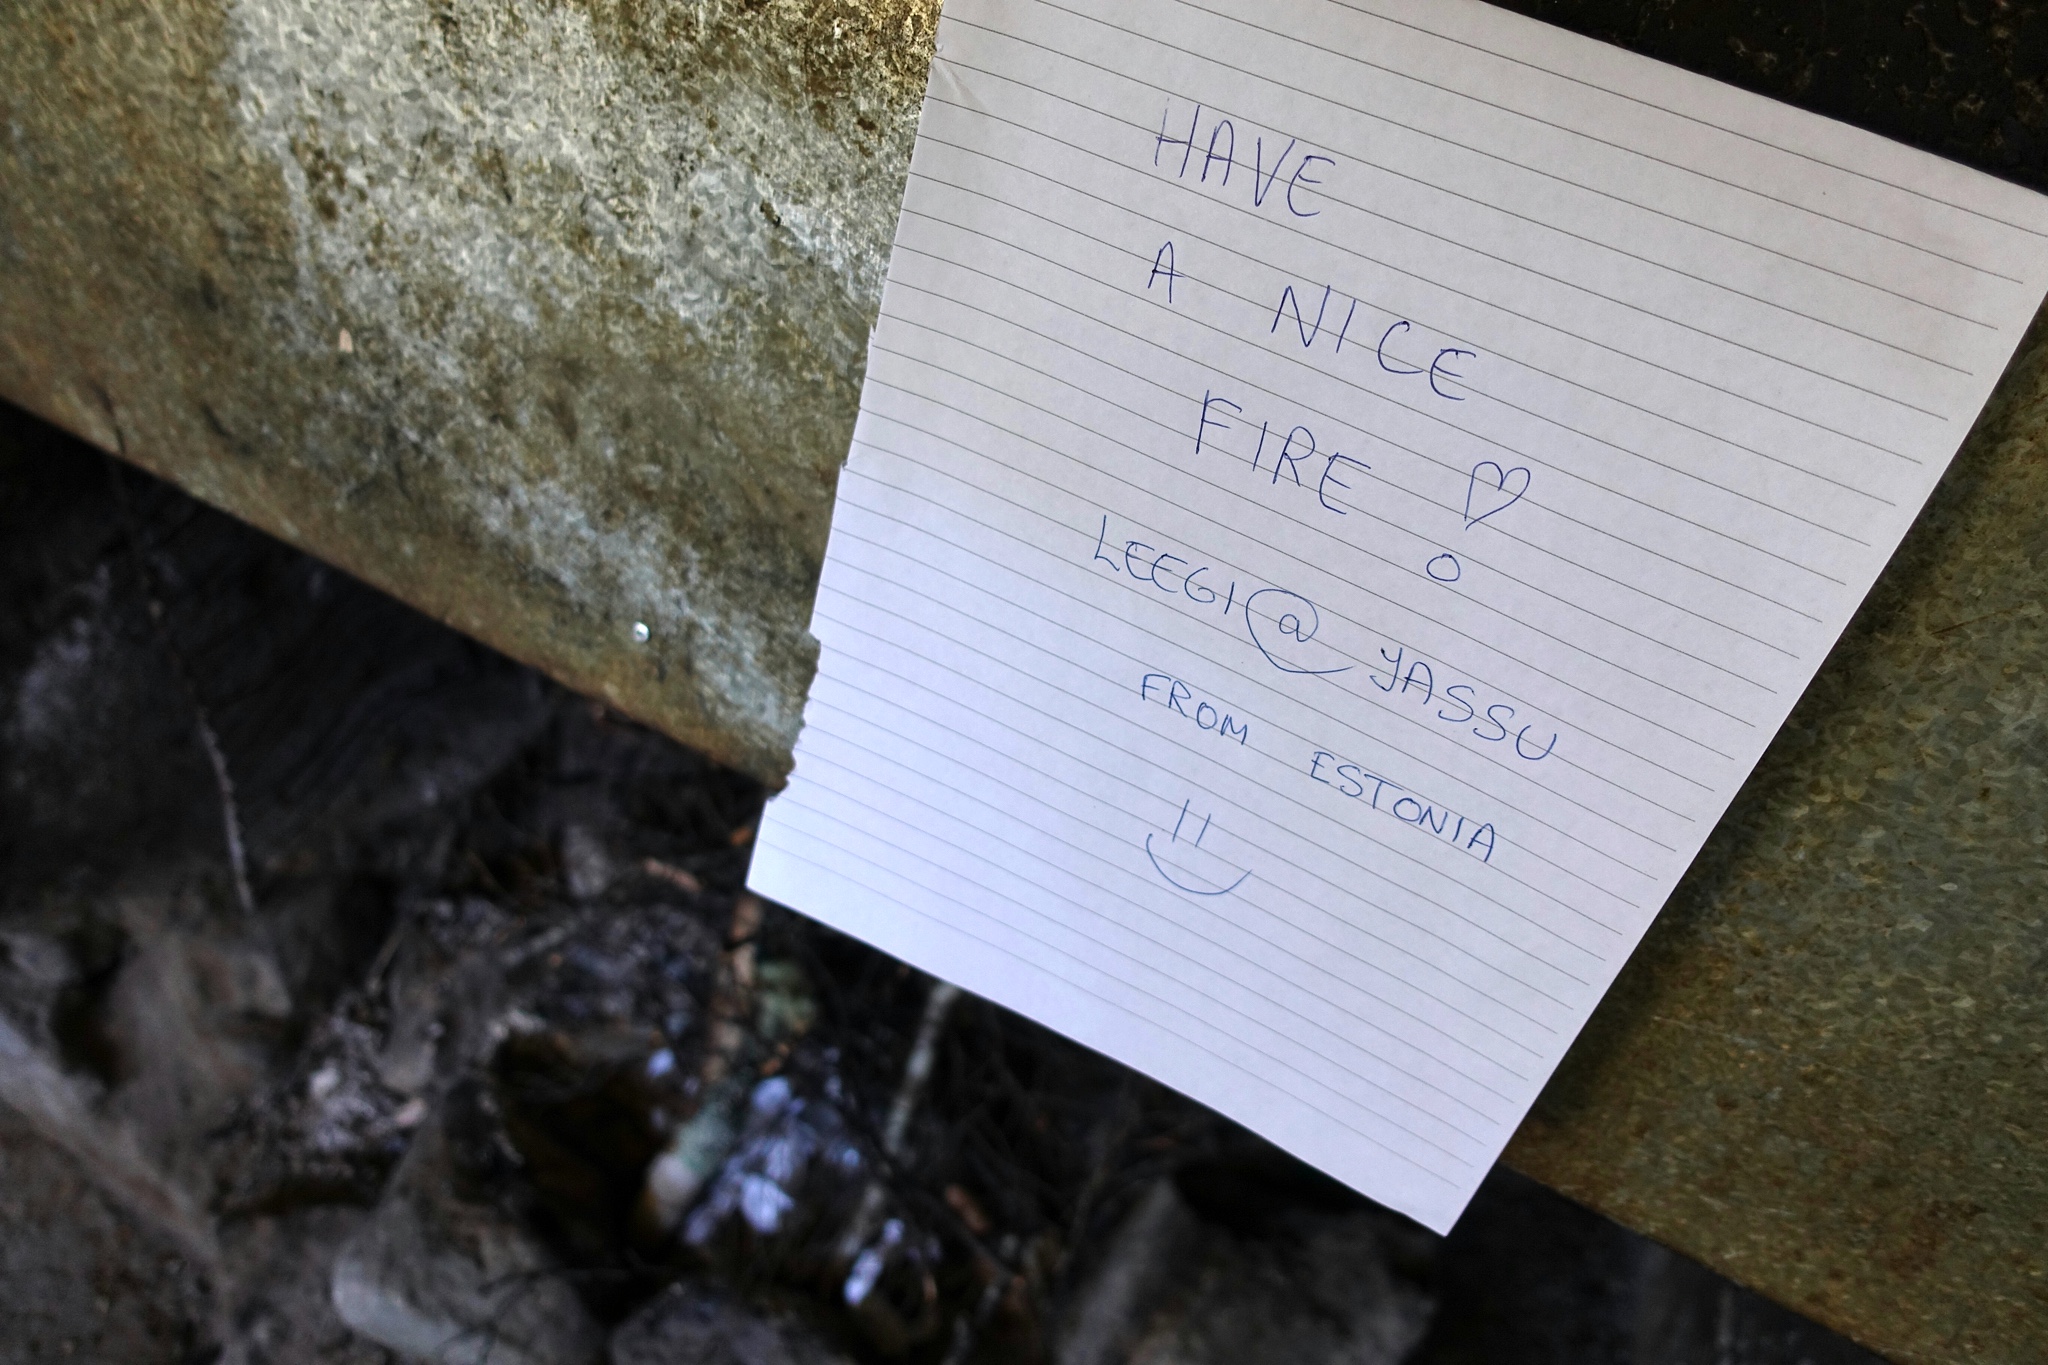 HAVE
A NICE
FIRE ♡
LEEGI@YASSU
FROM ESTONIA